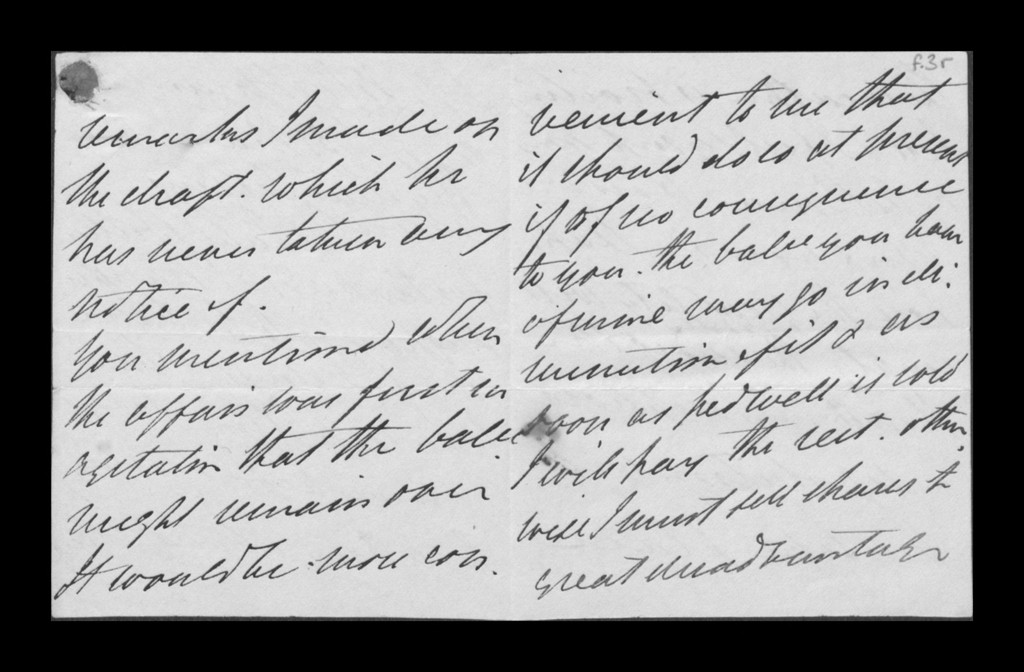 f.3r
remarks I made on
the draft. which he
has never taken any
notice of.
You mentioned when
the affair was first in
agitation that the bale.
might remain over
It would be more con.
venient to me that
it should do so at present
if of no consequence
to you. the bale you have
of mine may go in di.
munution of it & as
soon as Pedwell is sold
I will pay the rest. other
wise I must sell shares to
great disadvantage